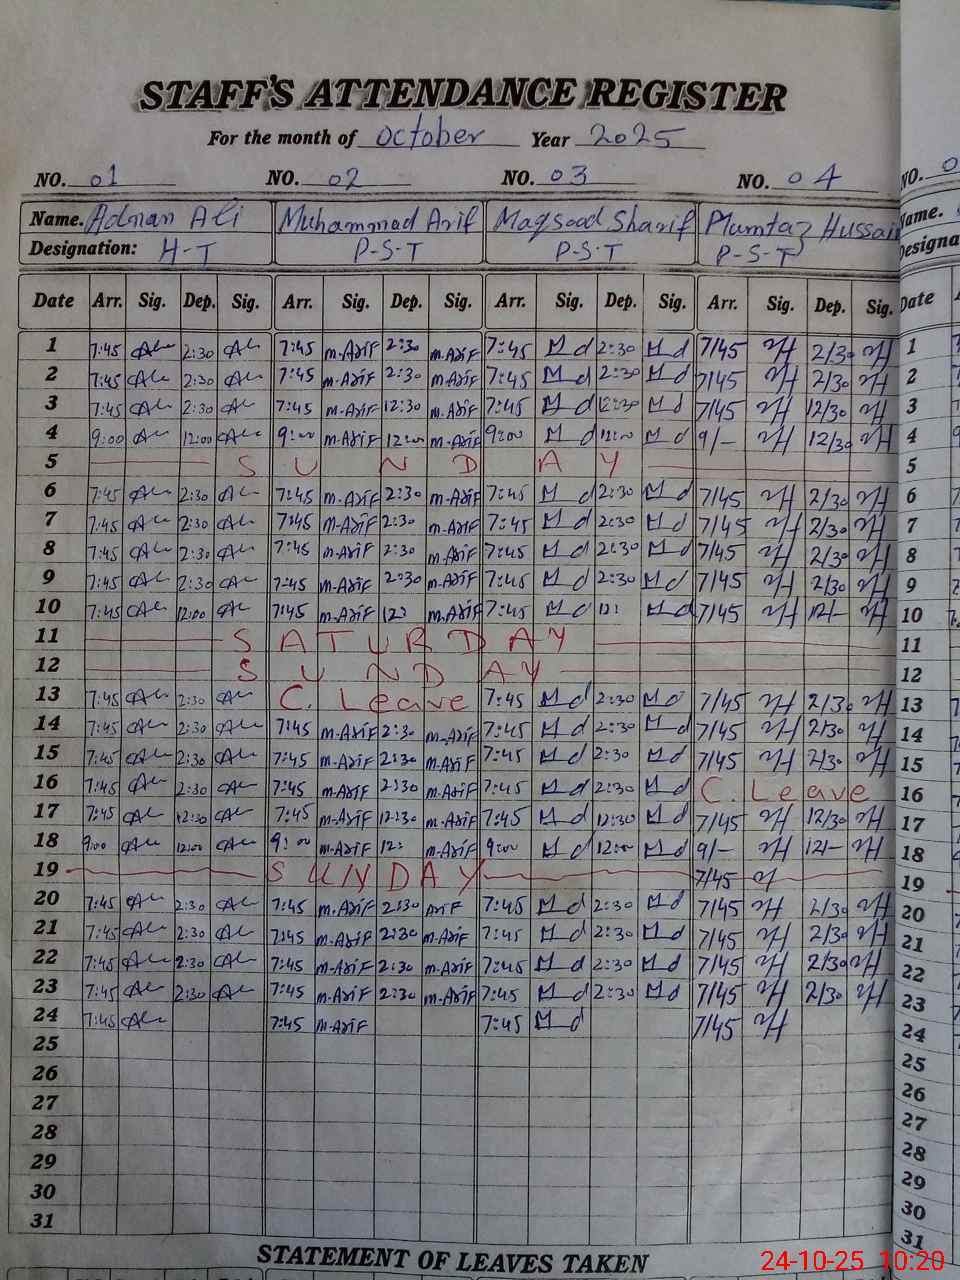 STAFF'S ATTENDANCE REGISTER
For the month of October Year 2025
NO. 01 NO. 02 NO. 03 NO. 04 NO.
Name. Adnan Ali Muhammad Arif Maqsood Sharif Mumtaz Hussain Name.
Designation: H-T P-S-T P-S-T P-S-T
Date Arr. Sig. Dep. Sig. Arr. Sig. Dep. Sig. Arr. Sig. Dep. Sig. Arr. Sig. Dep. Sig. Date
1 7:45 2:30 7:45 m.Arif 2:30 m.Arif 7:45 2:30 7/45 2/30 1
2 7:45 2:30 7:45 m.Arif 2:30 m.Arif 7:45 2:30 7/45 2/30 2
3 7:45 2:30 7:45 m.Arif 12:30 m.Arif 7:45 12:30 7/45 12/30 3
4 9:00 12:00 9:00 m.Arif 12:00 m.Arif 9:00 12:00 9/- 12/30 4
5 SUNDAY 5
6 7:45 2:30 7:45 m.Arif 2:30 m.Arif 7:45 2:30 7/45 2/30 6
7 7:45 2:30 7:45 m.Arif 2:30 m.Arif 7:45 2:30 7/45 2/30 7
8 7:45 2:30 7:45 m.Arif 2:30 m.Arif 7:45 2:30 7/45 2/30 8
9 7:45 2:30 7:45 m.Arif 2:30 m.Arif 7:45 2:30 7/45 2/30 9
10 7:45 12:00 7:45 m.Arif m.Arif 7:45 7/45 12/- 10
11 SATURDAY 11
12 SUNDAY 12
13 7:45 2:30 C. Leave 7:45 2:30 7/45 2/30 13
14 7:45 2:30 7:45 m.Arif 2:30 m.Arif 7:45 2:30 7/45 2/30 14
15 7:45 2:30 7:45 m.Arif 2:30 m.Arif 7:45 2:30 7/45 2/30 15
16 7:45 2:30 7:45 m.Arif 2:30 m.Arif 7:45 2:30 C. Leave 16
17 7:45 12:30 7:45 m.Arif 12:30 m.Arif 7:45 12:30 7/45 12/30 17
18 9:00 12:00 9:00 m.Arif 12: m.Arif 9:00 12:00 9/- 12/- 18
19 SUNDAY 7/45 19
20 7:45 2:30 7:45 m.Arif 2:30 Arif 7:45 2:30 7/45 2/30 20
21 7:45 2:30 7:45 m.Arif 2:30 m.Arif 7:45 2:30 7/45 2/30 21
22 7:45 2:30 7:45 m.Arif 2:30 m.Arif 7:45 2:30 7/45 2/30 22
23 7:45 2:30 7:45 m.Arif 2:30 m.Arif 7:45 2:30 7/45 2/30 23
24 7:45 7:45 m.Arif 7:45 7/45 24
25 25
26 26
27 27
28 28
29 29
30 30
31 31
STATEMENT OF LEAVES TAKEN
24-10-25 10:20